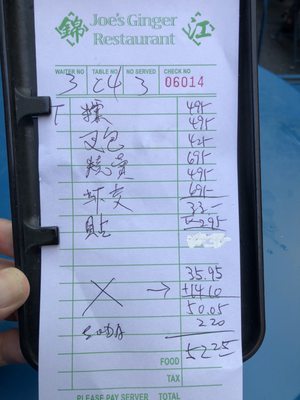 錦 Joe's Ginger 江
Restaurant
WAITER NO. TABLE NO. NO. SERVED CHECK NO.
3 C4 3 06014
T 495
495
叉包 425
695
495
695
33—
295
35.95
X → +14.10
50.05
SODA 2.20
52.25
FOOD
TAX
PLEASE PAY SERVER TOTAL